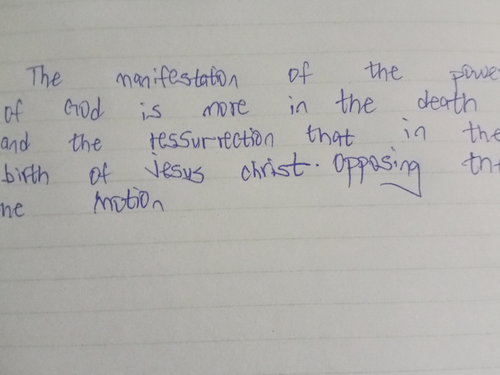 The manifestation of the powe
of God is more in the death
and the ressurrection that in the
birth of Jesus christ. Opposing
he motion